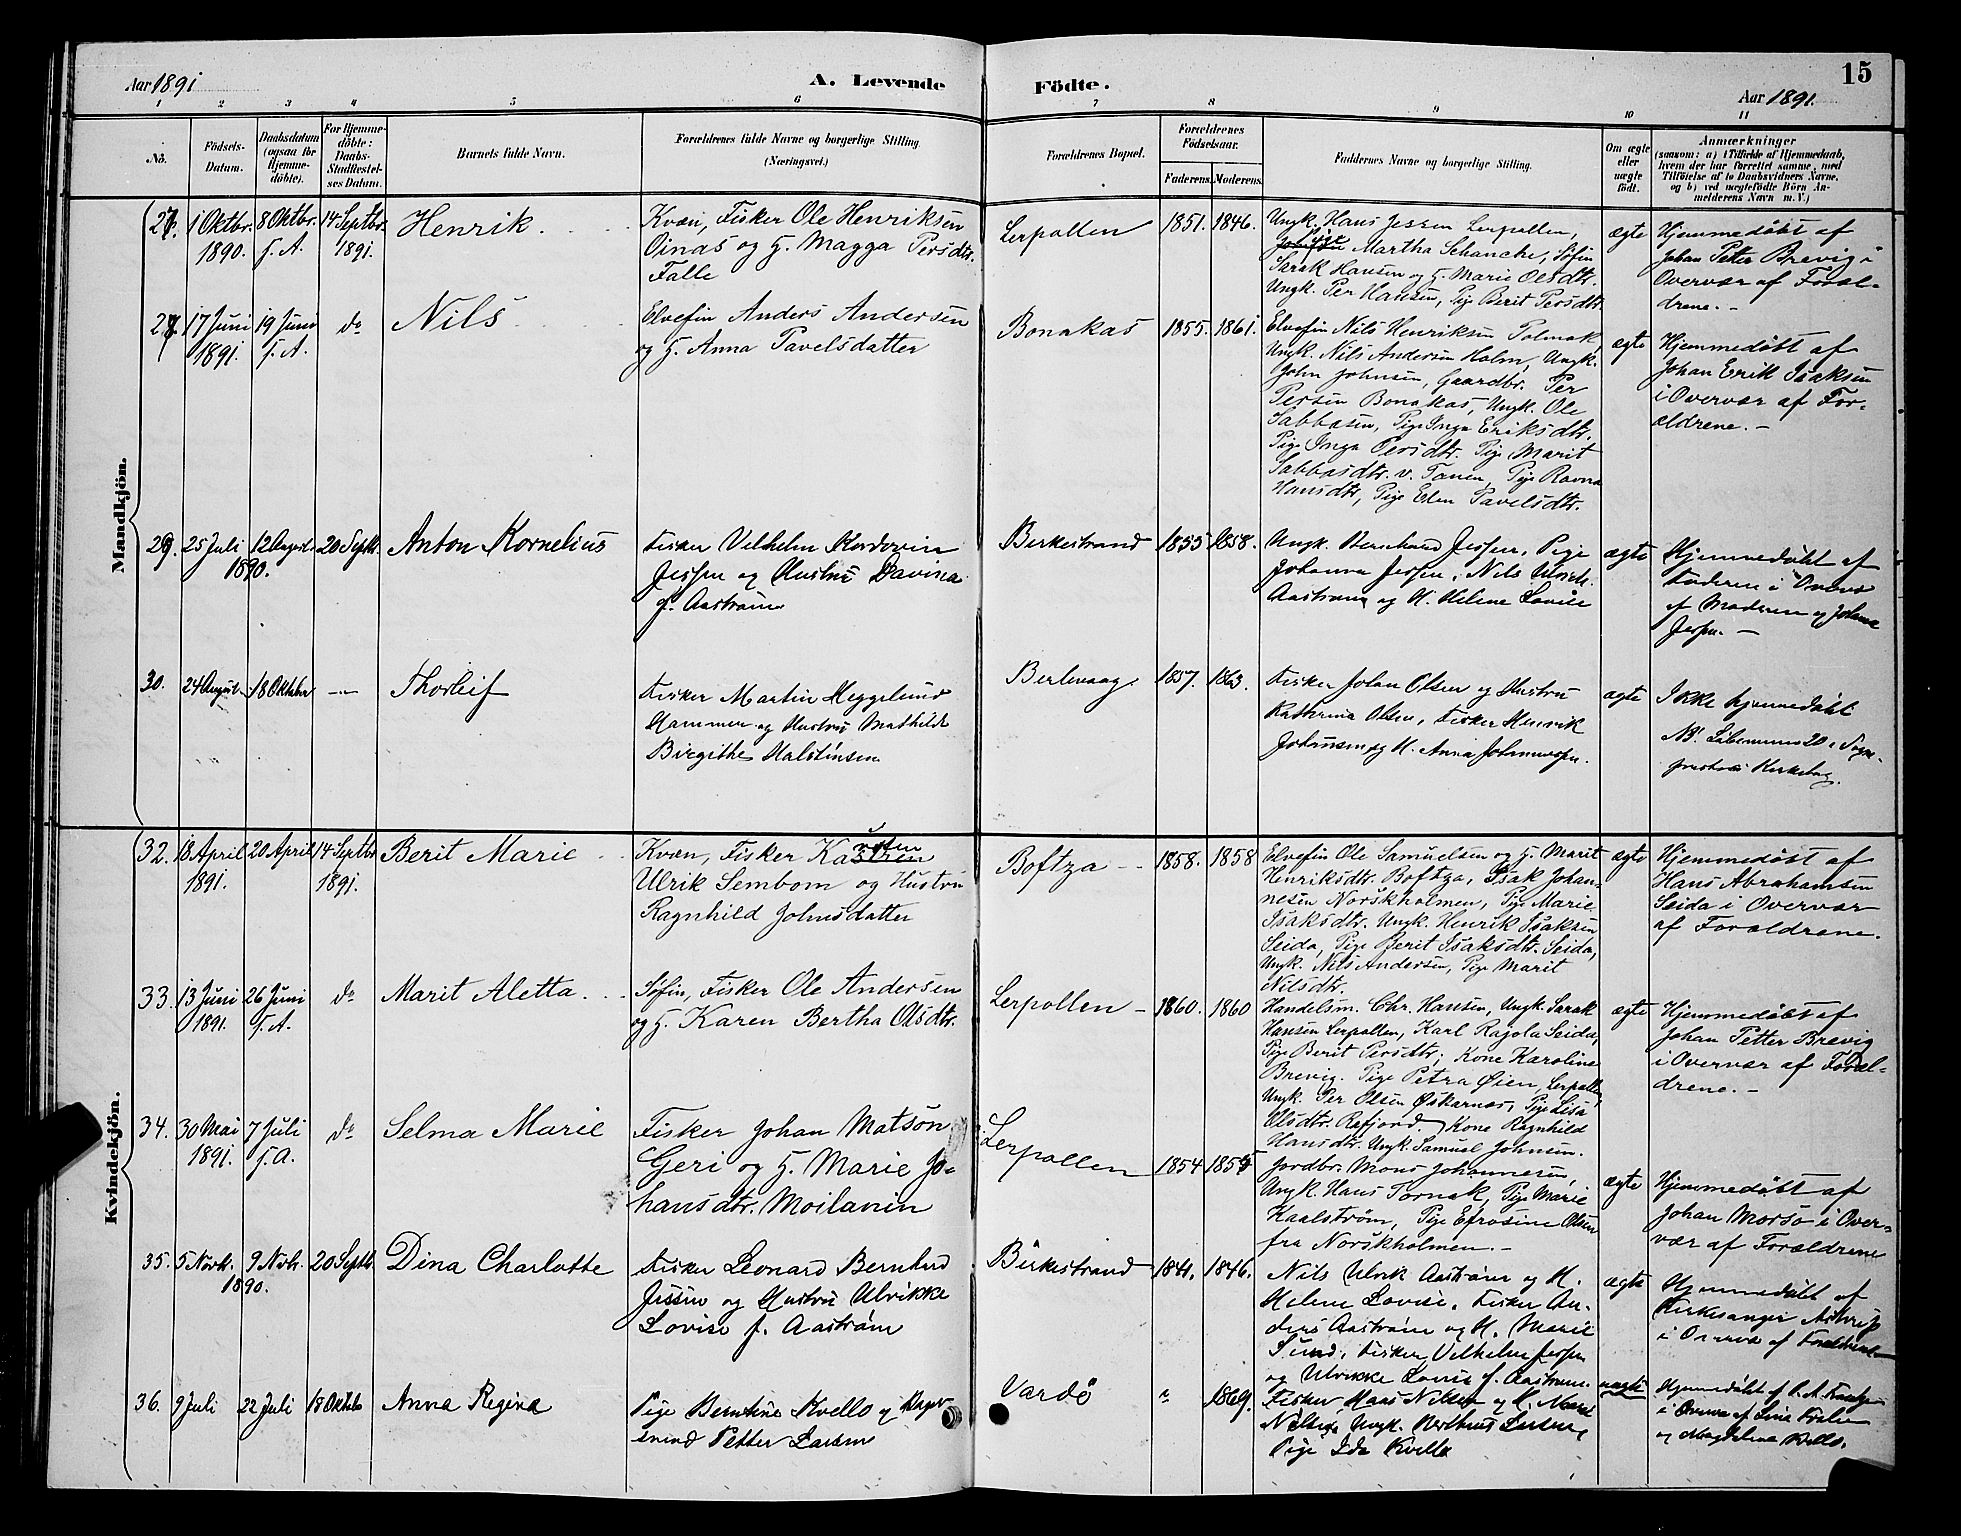 Aar 1891
A. Levende
Födte.
Aar 1891.
15
1 2 3 4 5 6 7 8 9 10 11
No.
Födsels-
Datum.
Daabsdatum
(ogsaa for
Hjemme-
döbte).
For Hjemme-
döbte:
Daabs-
Stadfæstel-
ses Datum.
Barnets fulde Navn.
Forældrenes fulde Navne og borgerlige Stilling.
(Næringsvei.)
Forældrenes Bopæl.
Forældrenes
Födselsaar.
Faderens. Moderens.
Faddernes Navne og borgerlige Stilling.
Om ægte
eller
uægte
födt.
Anmærkninger
(saasom: a) i Tilfælde af Hjemmedaab,
hvem der har forrettet samme, med
Tilföielse af to Daabsvidners Navne,
og b) ved uægtefödte Börn An-
melderens Navn m. V.)
Mandkjön.
27. 1 Oktbr. 8 Oktbr. 14 Septbr.
1890. s. A. 1891.
Henrik.
Kvæn, Fisker Ole Henriksen
Oinas og H. Magga Persdtr.
Falle
Lerpollen
1851. 1846.
Ungk. Hans Jessen Lerpollen,
Pige Martha Schanche, Söfin
Sarak Hansen og H. Marie Olsdtr.
Ungk. Per Hansen, Pige Berit Persdtr.
ægte
Hjemmedöbt af
Johan Petter Brevig i
Overvær af Foræl-
drene. -
28. 17 Juni 19 Juni do
1891. s. A.
Nils
Elvefin Anders Andersen
og H. Anna Pavelsdatter
Bonakas
1855. 1861.
Elvefin Nils Henriksen Polmak,
Ungk. Nils Andersen Holm, Ungk.
John Johnsen, Gaardbr. Per
Persen Bonakas, Ungk. Ole
Sabbasen, Pige Inga Eriksdtr.
Pige Inga Persdtr. Pige Marit
Sabbasdtr. v. Tanen, Pige Ravna
Hansdtr, Pige Elen Pavelsdtr.
ægte
Hjemmedöbt af
Johan Erik Isaksen
i Overvær af For-
ældrene. -
29. 25 Juli 12 August 20 Septb.
1890.
Anton Kornelius
Fisker Vilhelm Kordozein
Jessen og Hustru Davina
f. Aaström
Birkestrand
1855 1858.
Ungk. Bernhard Jessen, Pige
Johanna Jessen, Nils Ulrik
Aaström og H. Helene Lovise
ægte
Hjemmedöbt af
Faderen i Overvær
af Moderen og Johanna
Jessen. -
30. 24 August 18 Oktober -
Thorleif
Fisker Martin Heggelund
Hammer og Hustru Mathilde
Birgithe Halstensen
Berlevaag
1857. 1863.
Fisker Johan Olsen og Hustru
Kathrina Olsen, Fisker Henrik
Johansen og H. Anna Johannesen.
ægte
Ikke hjemmedöbt
NB. Löbenummer 20 i Sogne-
prestens Kirkebog.
Kvindekjön.
32. 18 April 20 April 14 Septbr
1891. 1891.
Berit Marie
Kvæn, Fisker Karsten
Ulrik Sembom og Hustru
Ragnhild Johnsdatter
Boftza
1858. 1858
Elvefin Ole Samuelsen og H. Marit
Henriksdtr. Boftza, Isak Johan-
nesen Norskholmen, Pige Marie
Isaksdtr. Ungk. Henrik Isaksen
Seida, Pige Berit Isaksdtr. Seida,
Ungk. Nils Andersen, Pige Marit
Nilsdtr.
ægte
Hjemmedöbt af
Hans Abrahamsen
Seida i Overvær
af Forældrene.
33. 13 Juni 26 Juni do
1891. s. A.
Marit Aletta
Söfin, Fisker Ole Andersen
og H. Karen Bertha Olsdtr.
Lerpollen
1860. 1860
Handelsm. Chr. Hansen, Ungk. Sarak
Hansen Lerpollen, Karl Ragola Seida,
Pige Berit Persdtr, Kone Karoline
Brevig. Pige Petra Öien, Lerpollen
Ungk. Per Olsen Öskarnæs, Pige Lisa
Olsdtr. Rafjord. Kone Ragnhild
Hansdtr. Ungk. Samuel Johnsen.
ægte
Hjemmedöbt af
Johan Petter Brevig
i Overvær af Foræl-
drene. -
34. 30 Mai 7 Juli do
1891. s. A.
Selma Marie
Fisker Johan Matson
Geri og H. Marie Jo-
hansdtr. Moilanin
Lerpollen
1854 1855
Jordbr. Mons Johannesen,
Ungk. Hans Tornak, Pige Marie
Kaalström, Pige Efrosine Olsen
fra Norskholmen. -
ægte
Hjemmedöbt af
Johan Morsö i Over-
vær af Forældrene
35. 5 Novb. 9 Novb. 20 Septb.
1890.
Dina Charlotte
Fisker Leonard Berntund
Jessen og Hustru Ulrikke
Lovise f. Aaström
Birkestrand
1841. 1846.
Nils Ulrik Aaström og H.
Helene Lovise, Fisker An-
ders Aaström og H. Marie
Sund, Fisker Vilhelm Jessen
og Ulrikke Lovise f. Aaström.
ægte
Hjemmedöbt af
Kirkesanger Astrup
i Overvær af Forældrene
36. 9 Juli 22 Juli 18 Oktob
Anna Regina
Pige Berntine Kvello og Ungk
Petter Larsen
Vardö
" 1869.
Fisker Hans Nilsen og H. Marie
Nilsen, Ungk.
Pige Ida Kvello
uægte
Hjemmedöbt af
i Overvær af
og Magdalena